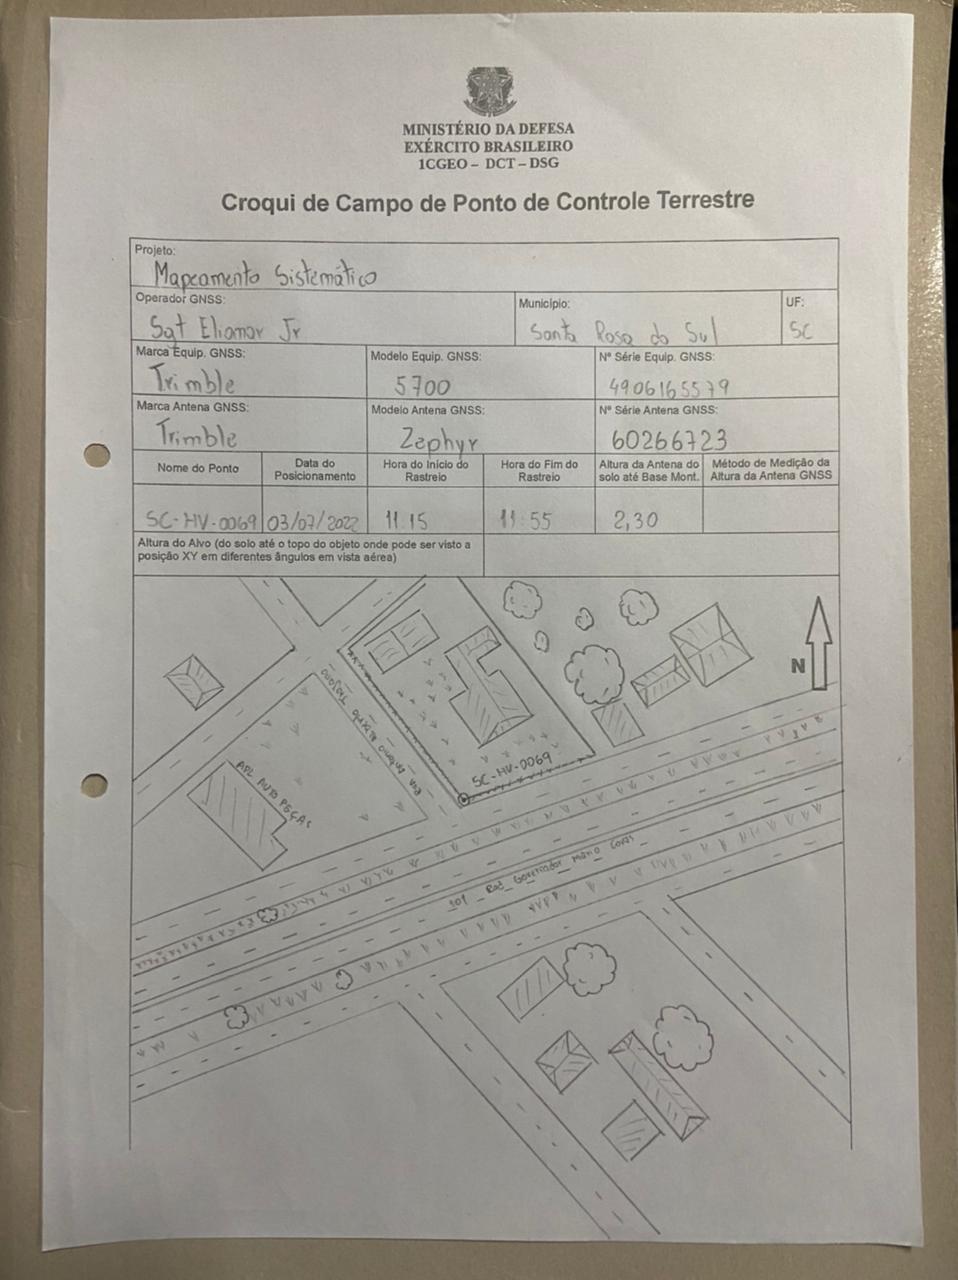 MINISTÉRIO DA DEFESA
EXÉRCITO BRASILEIRO
1CGEO – DCT – DSG
Croqui de Campo de Ponto de Controle Terrestre
Projeto:
Mapeamento Sistemático
Operador GNSS:
Sgt Eliomar Jr
Município:
Santa Rosa do Sul
UF:
SC
Marca Equip. GNSS:
Trimble
Modelo Equip. GNSS:
5700
Nº Série Equip. GNSS:
4906165579
Marca Antena GNSS:
Trimble
Modelo Antena GNSS:
Zephyr
Nº Série Antena GNSS:
60266723
Nome do Ponto
Data do Posicionamento
Hora do Início do Rastreio
Hora do Fim do Rastreio
Altura da Antena do solo até Base Mont.
Método de Medição da Altura da Antena GNSS
SC-HV-0069
03/07/2022
11:15
11:55
2,30
Altura do Alvo (do solo até o topo do objeto onde pode ser visto a
posição XY em diferentes ângulos em vista aérea)
N
Rua Antonio
SC-HV-0069
APL AUTO PEÇAS
101 Rod. Governador Mario Covas